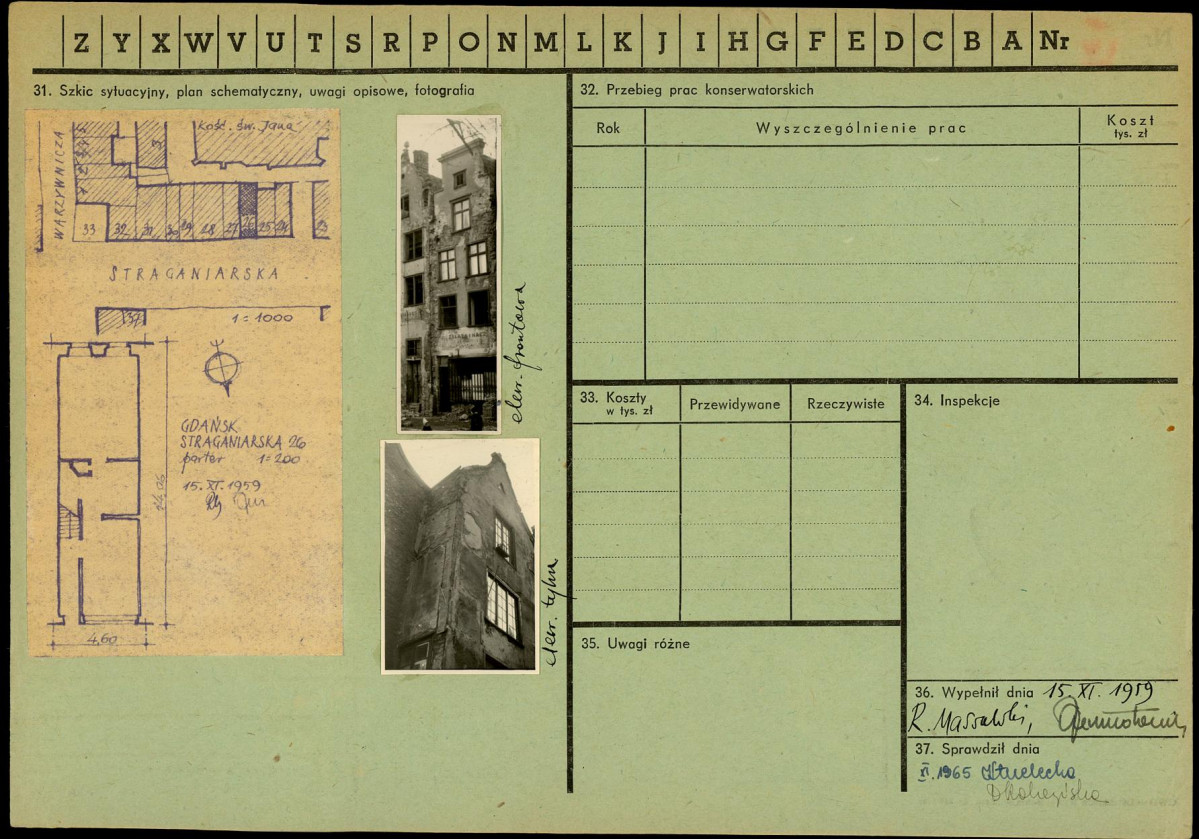 Z Y X W V U T S R P O N M L K J I H G F E D C B A Nr
31. Szkic sytuacyjny, plan schematyczny, uwagi opisowe, fotografia
WARZYWNICZA
Kość. św. Jana
3
7
33 32 31 30 29 28 27 26 25 24 23
STRAGANIARSKA
37
1=1000
GDAŃSK
STRAGANIARSKA 26
parter 1=200
15.XI.1959
4,60
elew. frontowa
elew. tylna
32. Przebieg prac konserwatorskich
Rok Wyszczególnienie prac Koszt
tys. zł
33. Koszty
w tys. zł
Przewidywane Rzeczywiste
34. Inspekcje
35. Uwagi różne
36. Wypełnił dnia 15. XI. 1959
R. Massalski,
37. Sprawdził dnia
XI.1965